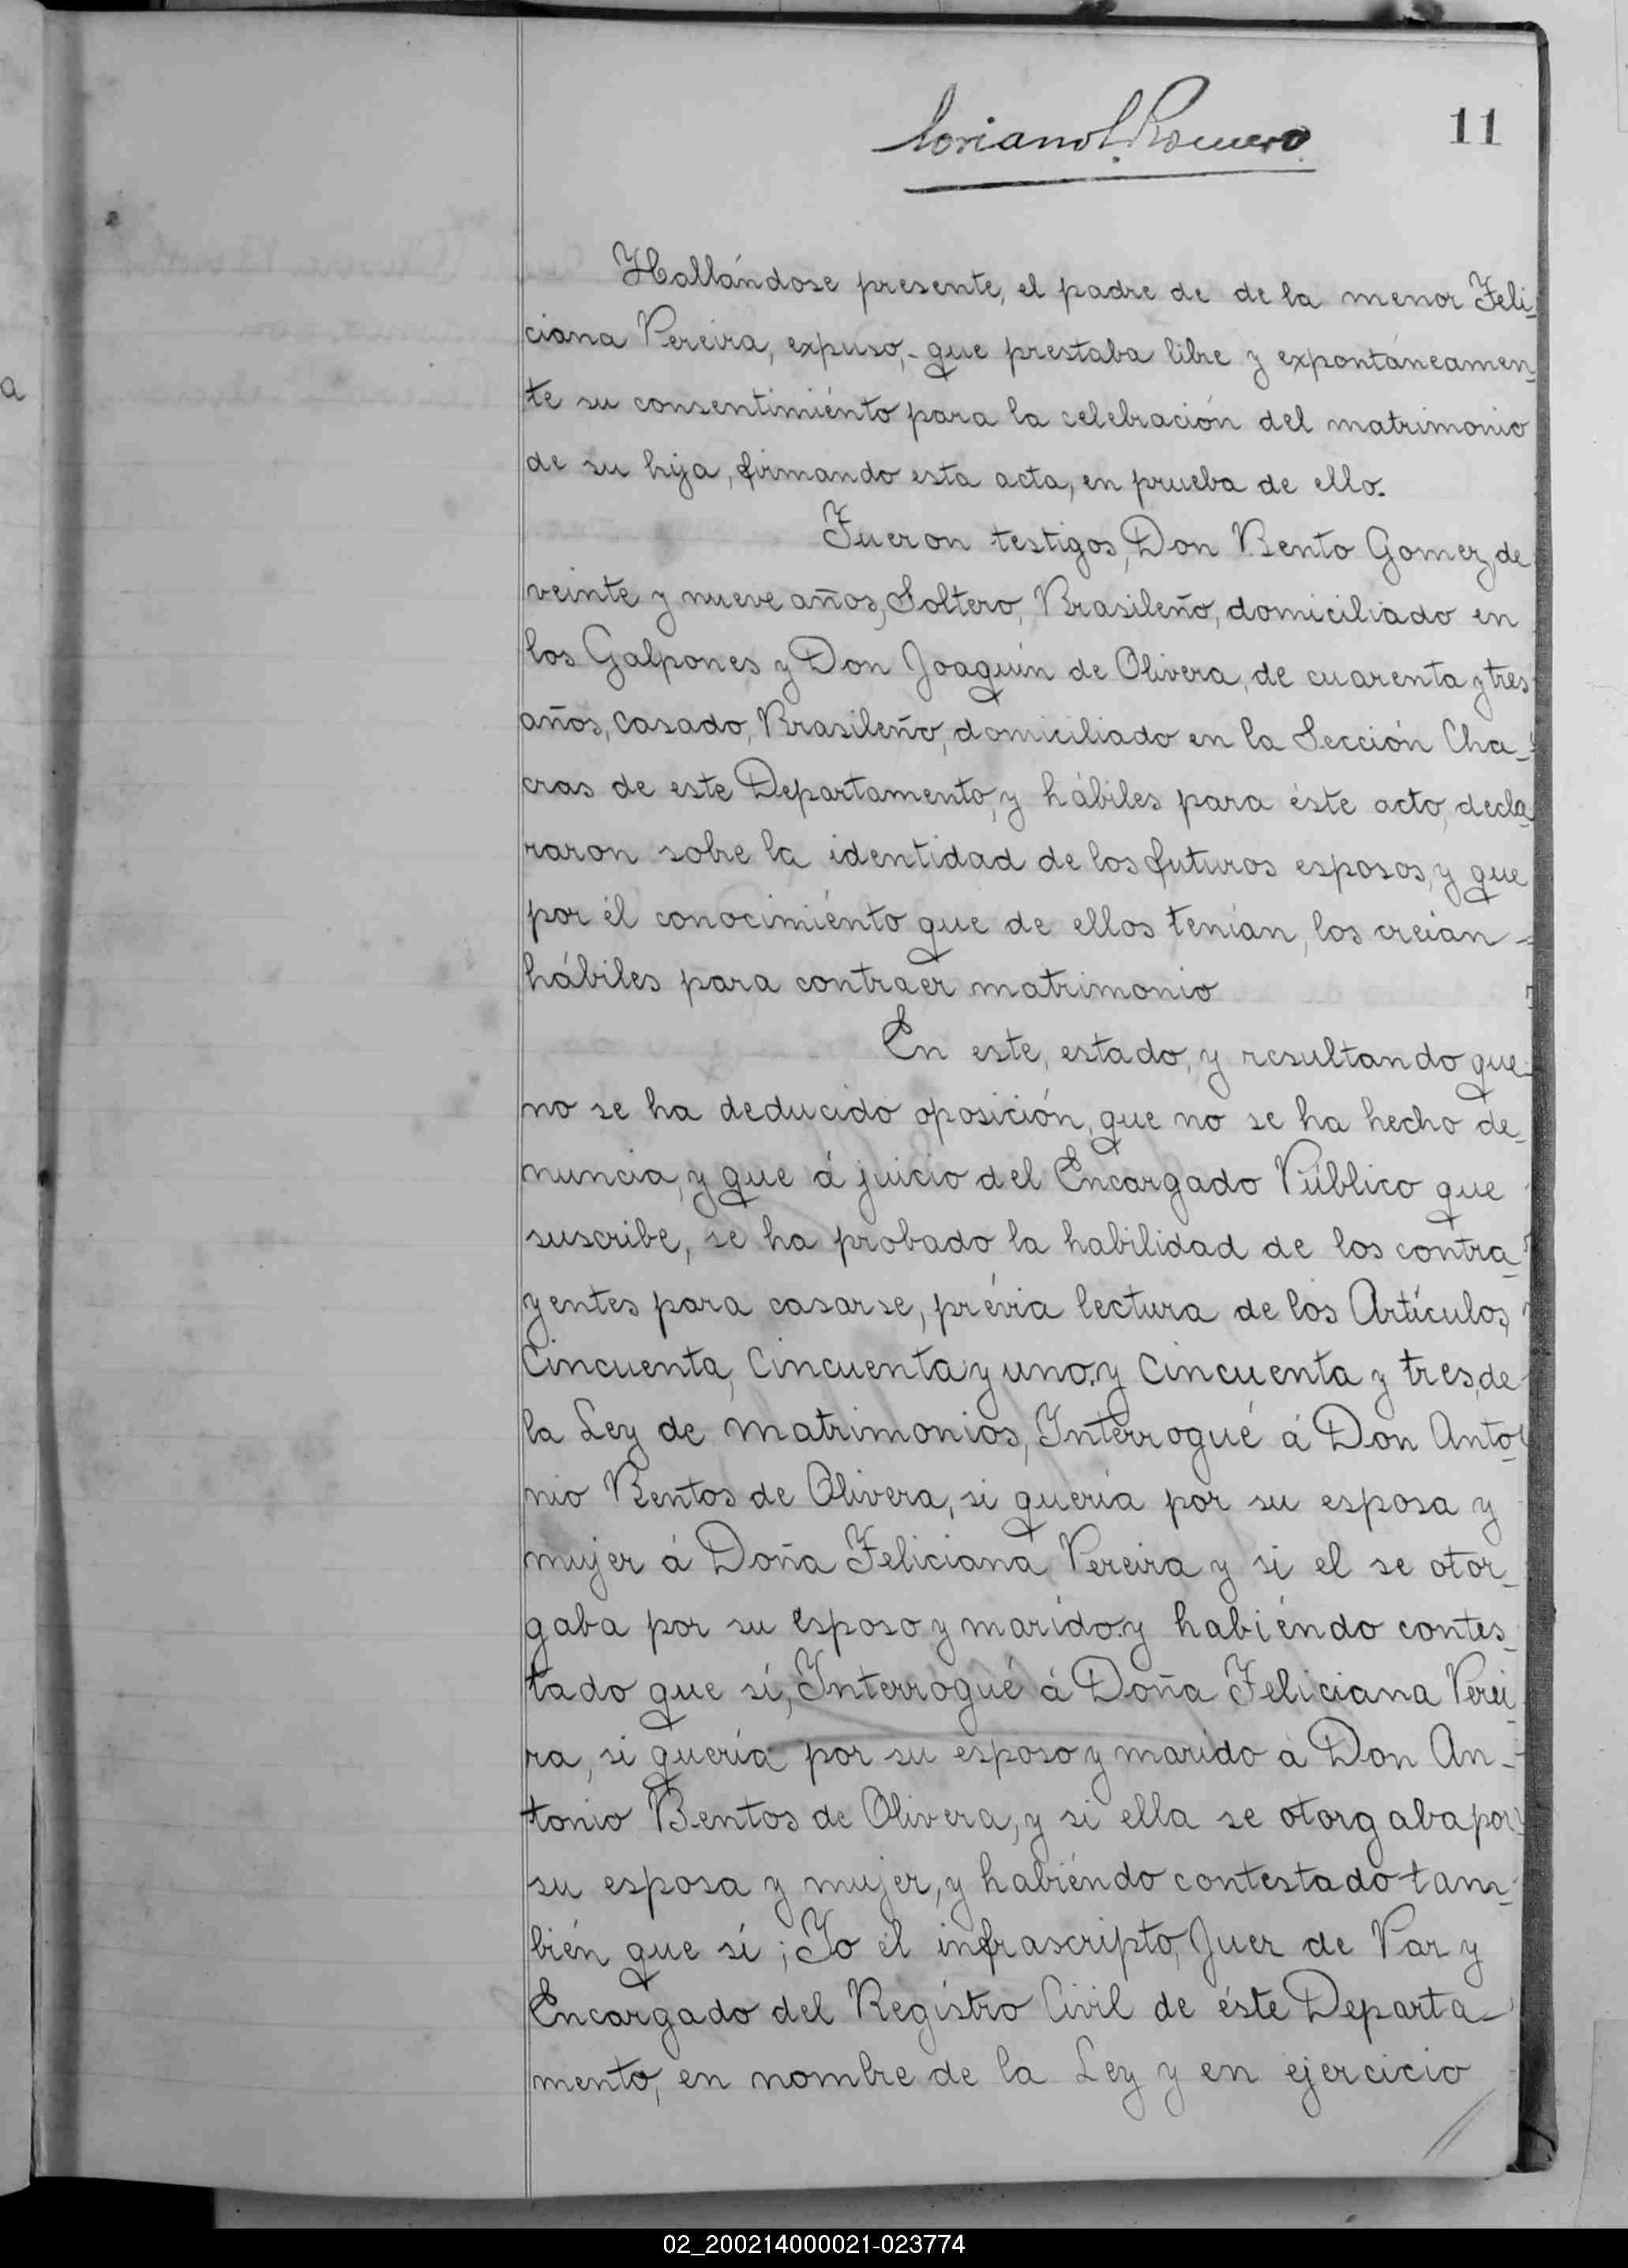 11
Soriano L. Romero
Hallándose presente, el padre de de la menor Feli-
ciana Pereira, expuso,- que prestaba libre y expontáneamen-
te su consentimiénto para la celebración del matrimonio
de su hija, firmando esta acta, en prueba de ello.
Fueron testigos, Don Bento Gomez, de
veinte y nueve años, Soltero, Brasileño, domiciliado en
los Galpones y Don Joaquin de Olivera, de cuarenta y tres
años, Casado, Brasileño, domiciliado en la Sección Cha-
cras de este Departamento, y hábiles para éste acto, decla-
raron sobre la identidad de los futuros esposos, y que
por él conocimiénto que de ellos tenían, los creían -
hábiles para contraer matrimonio
En este, estado, y resultando que
no se ha deducido oposición, que no se ha hecho de-
nuncia, y que á juicio del Encargado Público que
suscribe, se ha probado la habilidad de los contra-
yentes para casarse, prévia lectura de los Artículos,
Cincuenta, Cincuenta y uno, y Cincuenta y tres, de
la Ley de Matrimonios, Interrogué á Don Anto-
nio Bentos de Olivera, si quería por su esposa y
mujer á Doña Feliciana Pereira y si el se otor-
gaba por su esposo y marido y habiéndo contes-
tado que sí, Interrogué á Doña Feliciana Perei-
ra, si quería por su esposo y marido á Don An-
tonio Bentos de Olivera, y si ella se otorgaba por
su esposa y mujer, y habiéndo contestado tam-
bién que sí; Yo él infrascripto, Juez de Paz y
Encargado del Registro Civil de éste Departa-
mento, en nombre de la Ley y en ejercicio
//
a
02_200214000021-023774